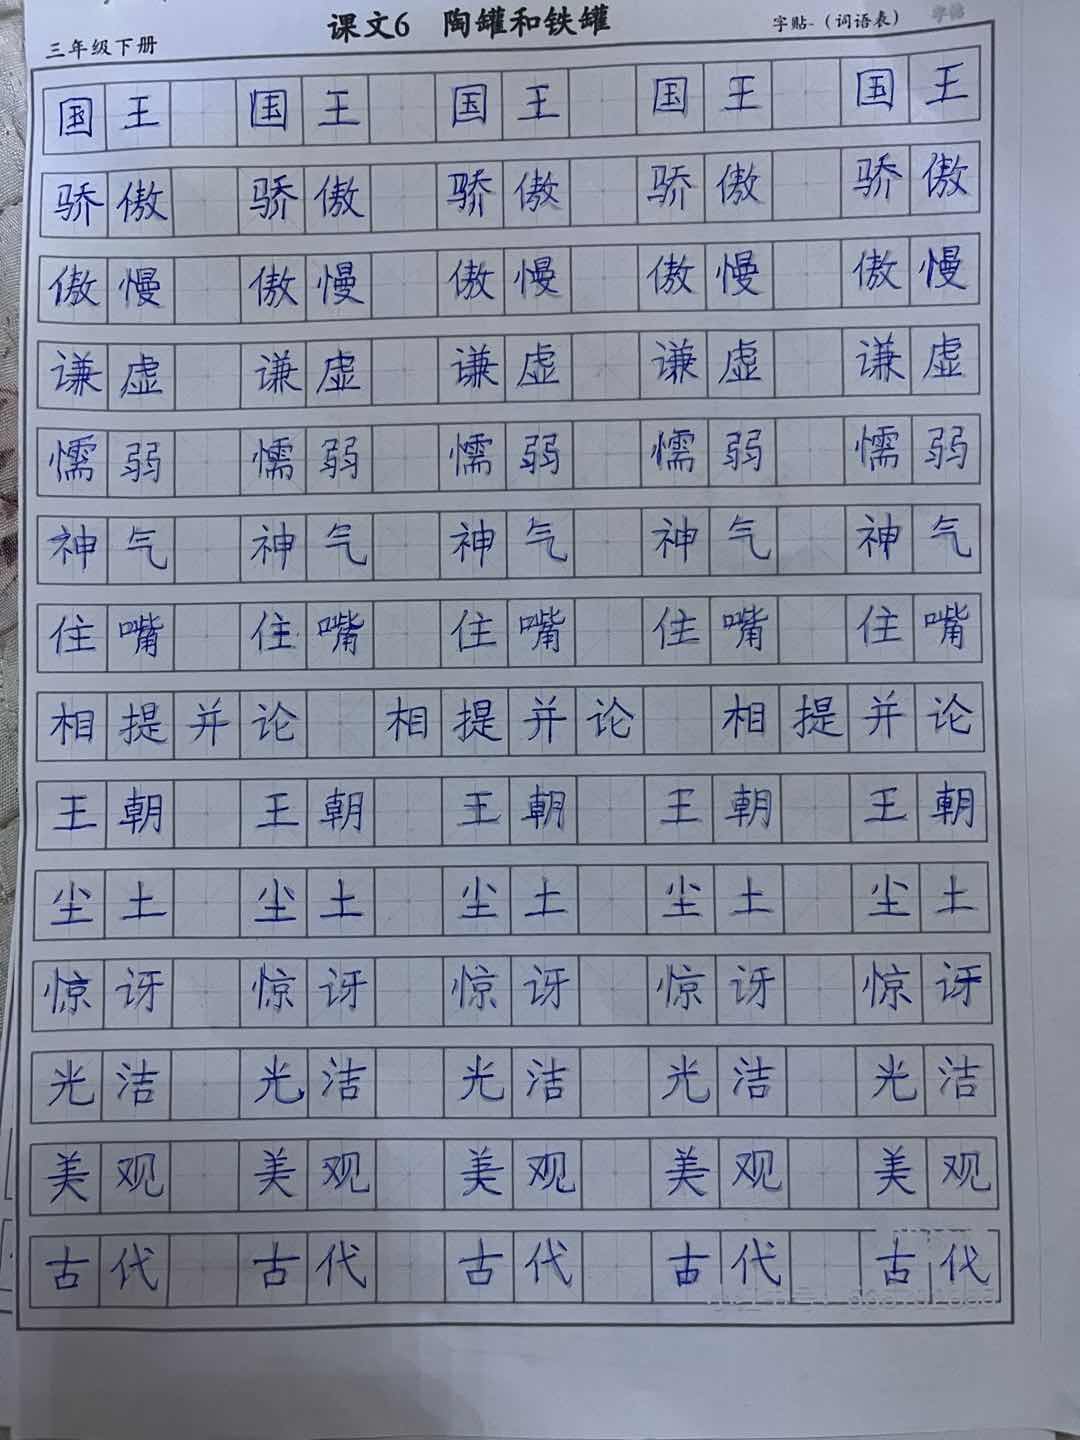 三年级下册 课文6 陶罐和铁罐 字贴-（词语表）
国王 国王 国王 国王 国王
骄傲 骄傲 骄傲 骄傲 骄傲
傲慢 傲慢 傲慢 傲慢 傲慢
谦虚 谦虚 谦虚 谦虚 谦虚
懦弱 懦弱 懦弱 懦弱 懦弱
神气 神气 神气 神气 神气
住嘴 住嘴 住嘴 住嘴 住嘴
相提并论 相提并论 相提并论
王朝 王朝 王朝 王朝 王朝
尘土 尘土 尘土 尘土 尘土
惊讶 惊讶 惊讶 惊讶 惊讶
光洁 光洁 光洁 光洁 光洁
美观 美观 美观 美观 美观
古代 古代 古代 古代 古代